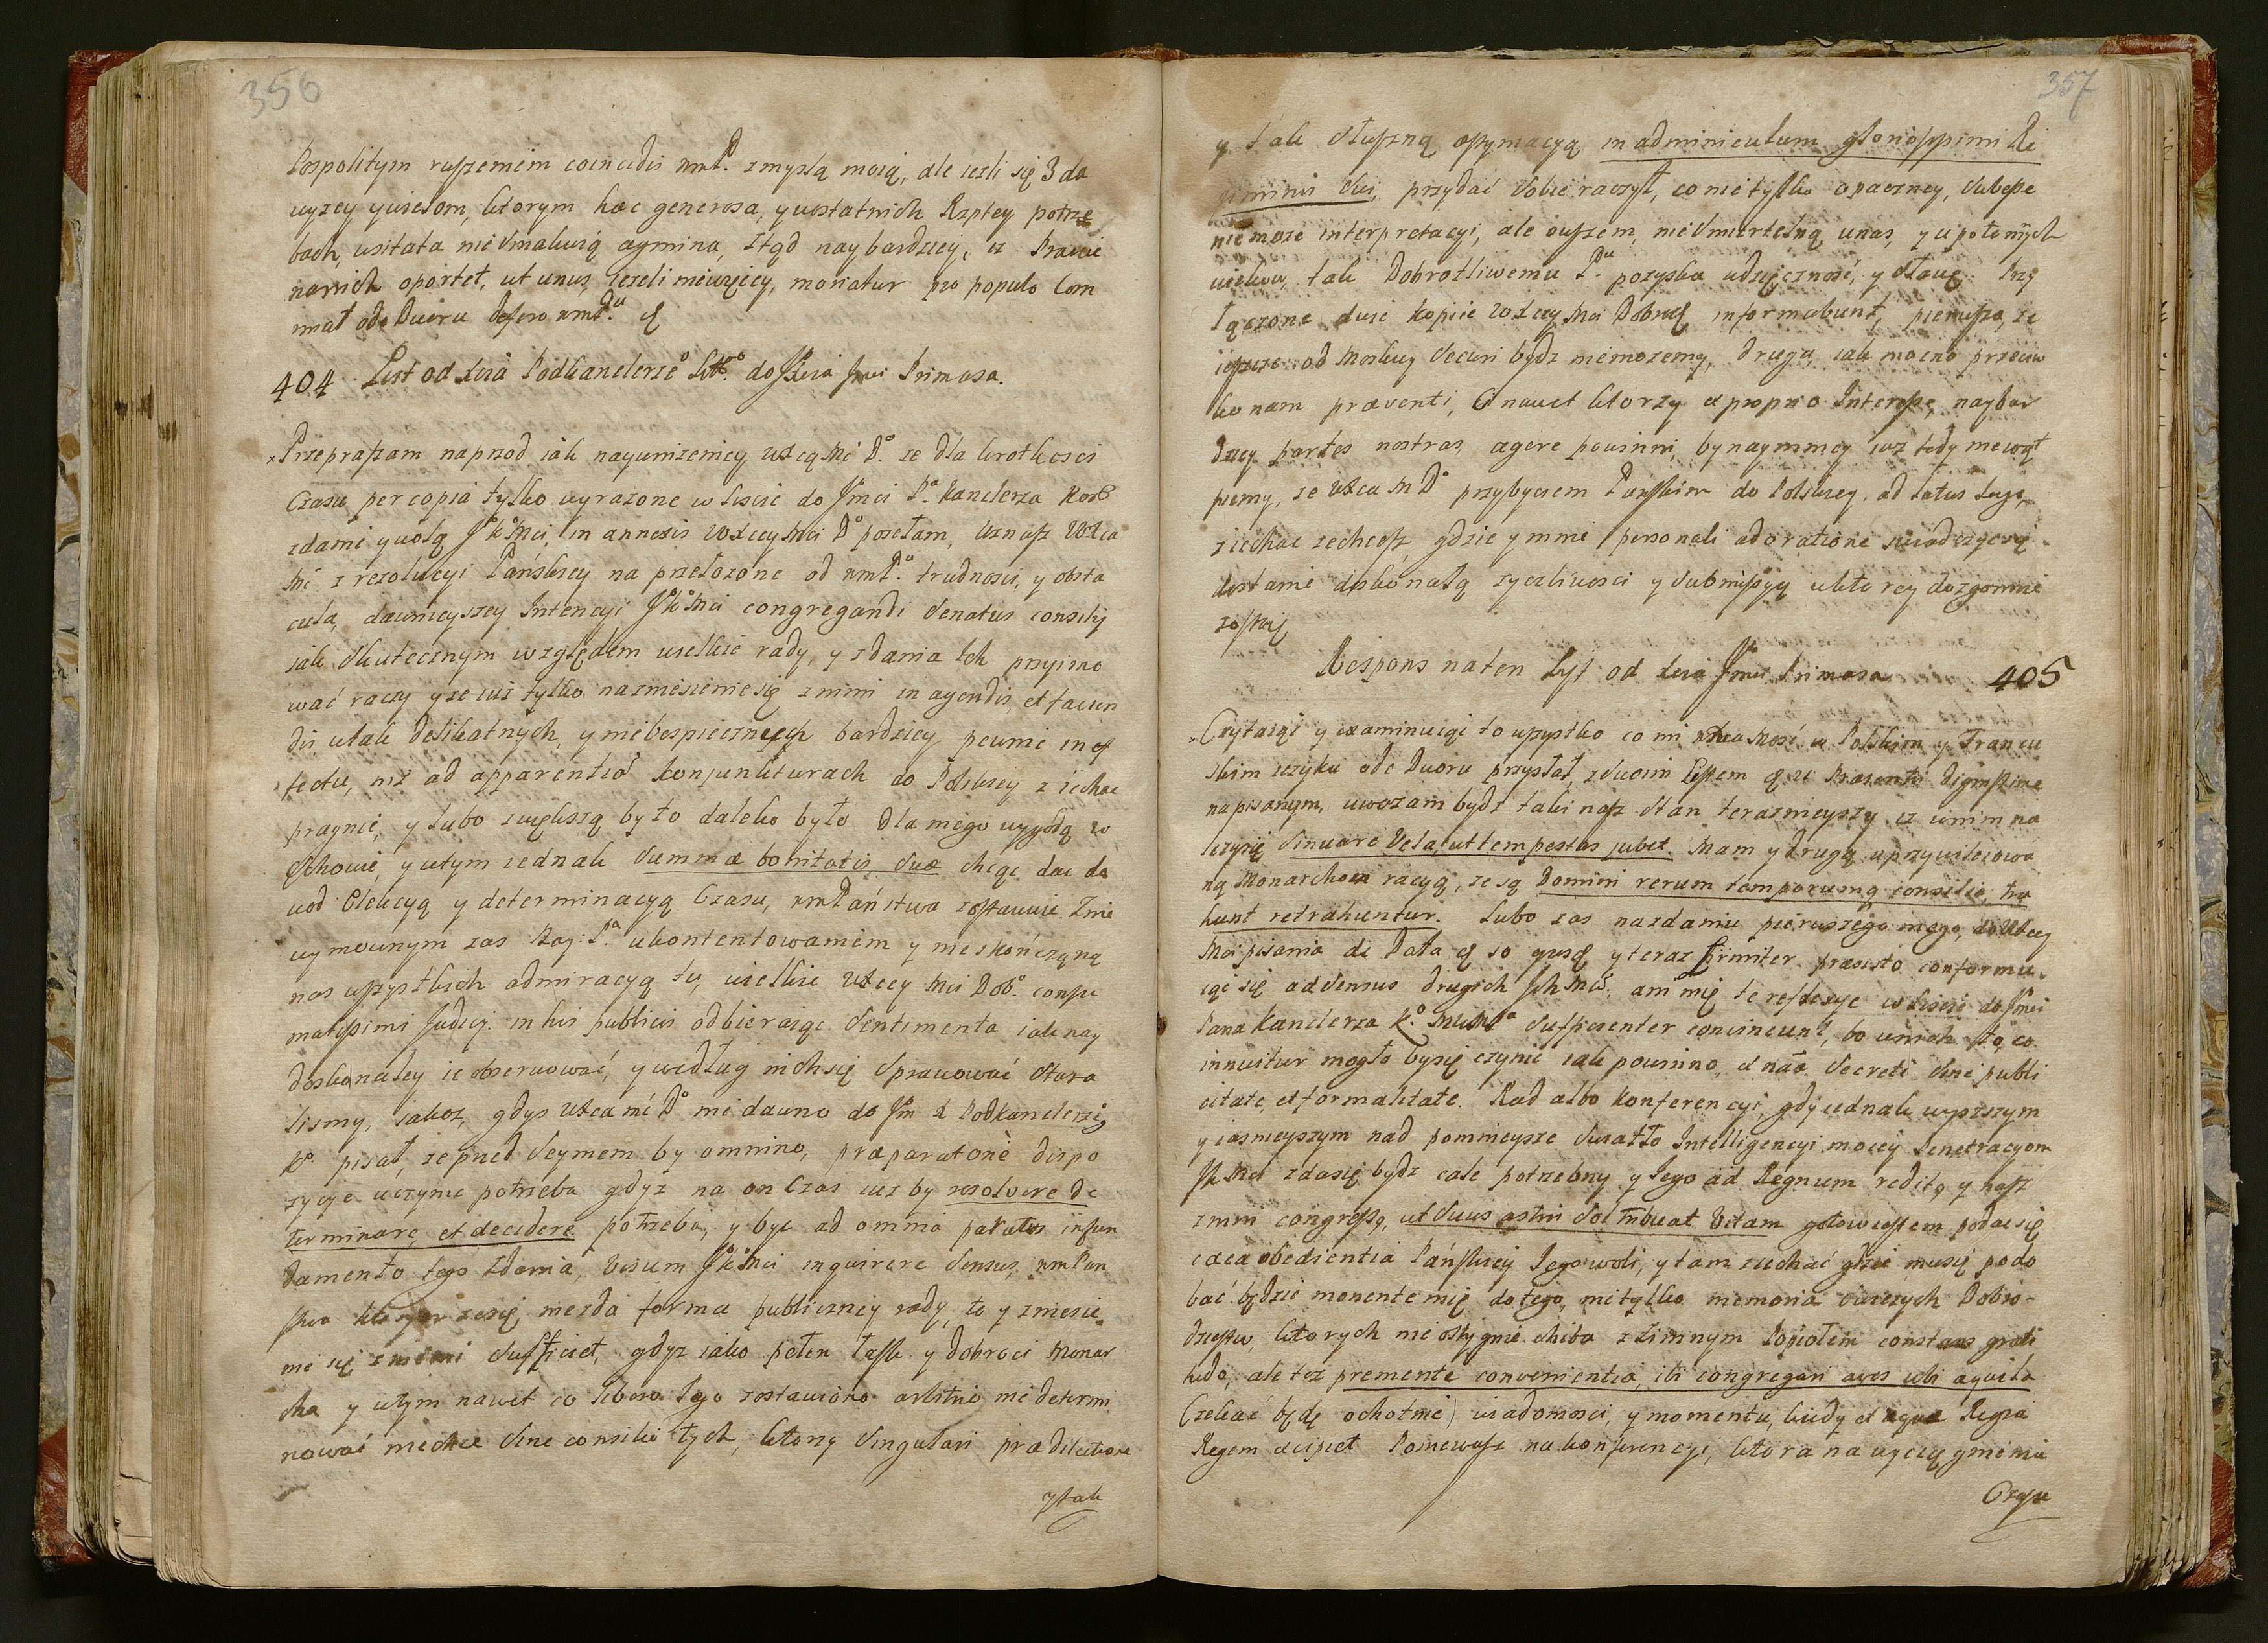 356
Pospolitym ruszeniem coincidit wmP. z myslą moią, ale iezli się zda
wyzey y wiesom, ktorym haec generosa, y w ostatnich Rzptey potrze
bach, usitata nie smakuią agmina, ztąd naybardziey, iz Prawie
na nich oportet, ut unus, iezeli nie więcey, moriatur pro populo Com
mat ode Dworu desero wmPu. &
404 List od Xcia Podkanclerze Litt. do Xcia Jmci Primasa.
Przepraszam naprzod iak nayunizeniey WXcą Mci D. ze dla krotkosci
Czasu per copia tylko wyrazone w liscie do Jmci Pa Kanclerza Kor
zdanie y wolą JKMci, in annexis WXcey Mci Do posełam, Uznasz WXca
Mć z rezolucyi Pańskiey na przełozone od wmPa. trudnosci, y obsta
cula, dawnieyszey Intencyi JKMci congregandi Senatus consilij
iak skutecznym względem wielkie rady, y zdania Ich przyimo
wać raczy y ze iuz tylko na zniesienie się z nimi in agendis, et facien
dis w tak delikatnych, y niebespiecznych bardziey pewnie in ef
fectu, niż ad apparentiā konjunkturach do Polskiey ziechac
pragnie, y lubo z większą by to daleko było dla niego wygodą w
Wschowie, y w tym iednak Summae bonitatis Suae chcąc dac do
wod Elekcyą y determinacyą Czasu, wmPaństwa zostawuie. Z nie
wymownym zas Nay: Pa. ukontentowaniem y nieskończoną
nas wszystkich admiracyą tu, wielkie WXcey Mci Dob. consu
matissimi Judicij in his publicis odbieraiąc Sentimenta iak nay
doskonaley ie obserwować, y według nich się sprawować stara
lismy, iakoz, gdys WXca mć Do nie dawno do Jm X Podkanclerzego
Ko. pisał, ze przed Seymem by omnino, praeparatorie dispo
zycye uczynic potrzeba gdyz na on Czas iuz by resolvere de
terminare, et decidere potrzeba, y byc ad omnia paratus in fun
damento tego zdania, visum JKMci inquirere Sensus, wmPan
stwa ktorym ze się niezda forma publiczney rady, to y zniesie
nie się z niemi sufficiet, gdyz iako pełen łask y dobroci Monar
cha y w tym nawet co liboro Jego zostawiono arbitrio nie determi
nować nie chce sine consilio tych, ktorzy Singulari praedilectione
y tak
357
y tak słuszną estymacyą in adminiculum gloriossimi Re
giminis Sui, przydać sobie raczył, co nie tylko opaczney, subesse
nie moze interpretacyi, ale owszem, nieśmiertelną u nas, y u potomnych
wiekow, tak Dobrotliwemu Pu. pozyska wdzięczność, y sławę. Przy
łączone dwie kopie WXcey Mci Dobrey informabunt, pierwsza, ze
ieszcze od Moskwy Securi bydz niemozemy, druga, iak mocno przeciw
ko nam praeventi, Ci nawet ktorzy ex proprio Interesse, naybar
dziey partes nostras, agere powinni, bynaymniey iuz tedy nie wąt
piemy, ze WXca M Do przybyciem Pańskim do Polskiey, ad latus Jego,
ziechac zechcesz, gdzie y mnie personali adoratione swiadczącą
dostanie doskonałą zyczliwosci y submissyą w ktorey dozgonnie
zostaię
Respons na ten List od Xcia Jmci Primasa 405
Czytaiąc y examinuiąc to wszystko co mi WXca Mosć w Polskim y Francu
skim ięzyku ode Dworu przysłał, z swoim listem & 26 Praesentis dignissime
napisanym, uwazam bydź taki nasz stan teraznieyszy iz w nim na
lezy się Sinuare Vela, ut tempestas jubet. Mam y drugą uprzywileiowa
ną Monarchow racyą, ze są Domini rerum temporumq consilia, tra
hunt retrahuntur. Lubo zas na zdaniu pierwszego mego, do WXcey
Mci pisania de Data & 10 y teraz firmiter praesisto conformu
iąc się ad Sensus drugich Ich Mć. ani mię te reflexye w liscie do Jmci
Pana Kanclerza Ko. sufficienter convincunt, bo w nich to, co
innuitur mogło by się czynic iak powinno, Secreti sine publi
citate, et formalitate. Rad albo konferencyi, gdy iednak wyzszym
y iasnieyszym nad pomnieysze swiatło Intelligencyi moiey Penetracyom
JKMci zda się bydz cale potrzebny y Jego ad Regnum redita y nasz
z nim congress, ut Suus astris Sol tribuat Vitam gotow iestem podac się
caeca obedientia Pańskiey Jego woli, y tam ziechać gdzie mu się podo
bać będzie monente mię do tego, nie tylko memoria swiezych Dobro-
dzieystw, ktorych nie ostygnie chiba z zimnym Popiołem constans grati
tudo, ale tez premente convenientia, ibi congregari aves ubi aquila
Czekac będę ochotnie wiadomosci, y momentu, kiedy et aquae Regia
Regem accipiet Poniewasz na konferencye, ktora na wyciągnieniu
Czasu